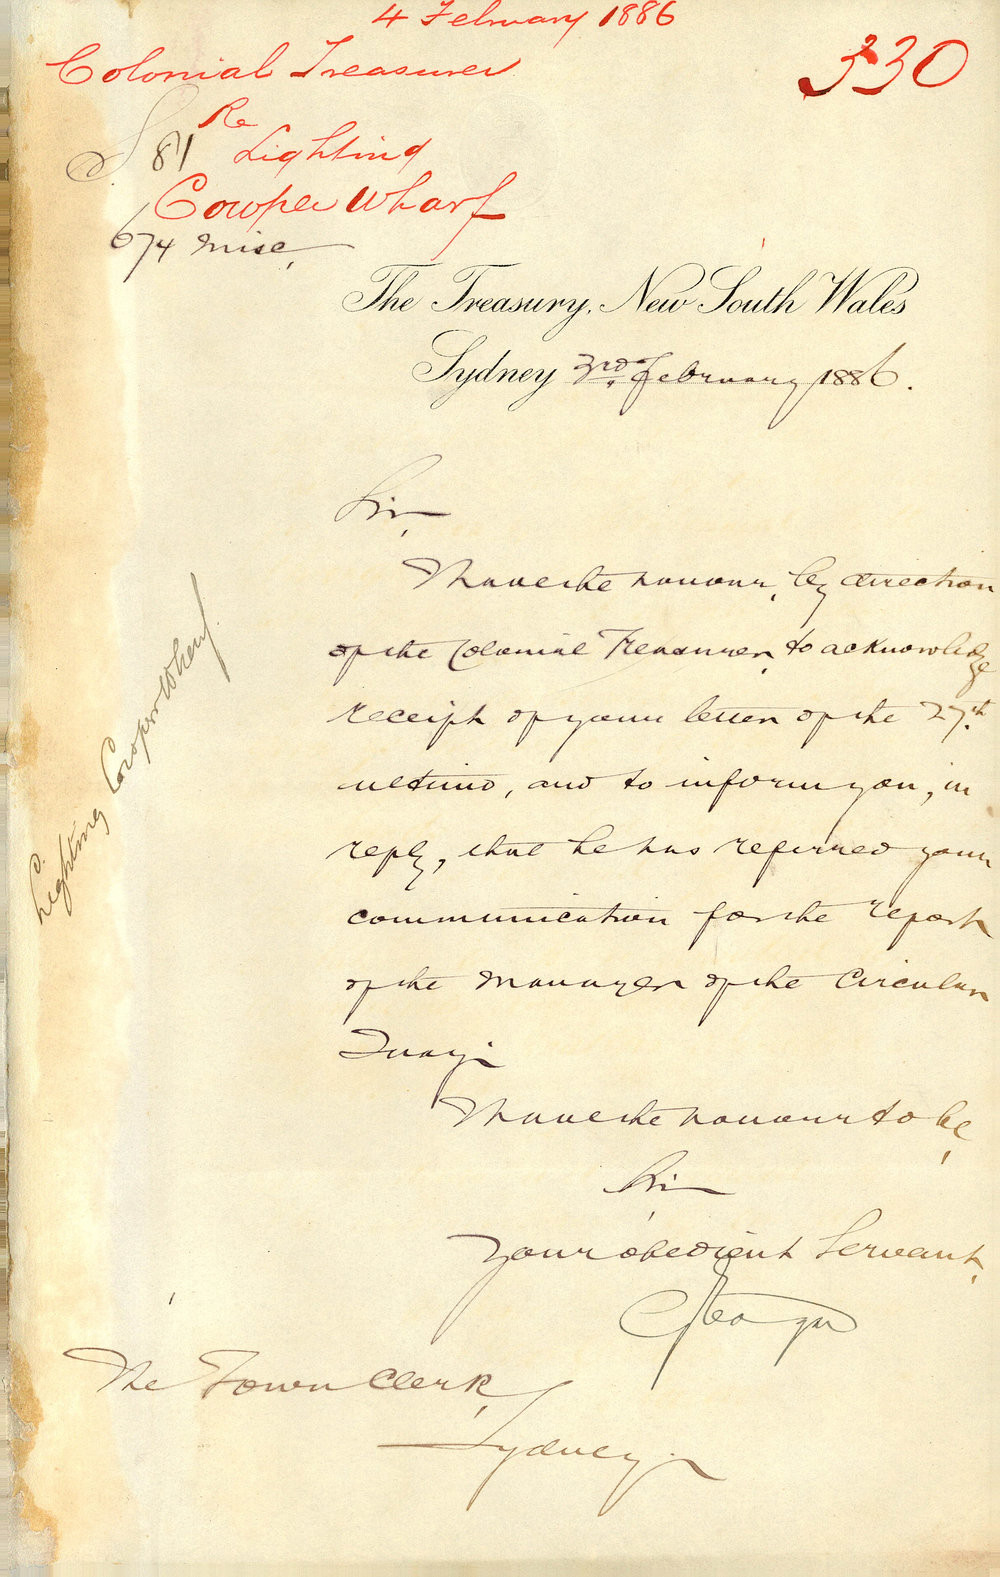 4 February 1886
Colonial Treasurer
330
Re
S 81 Lighting
Cowper Wharf
674 misc.
The Treasury, New South Wales
Sydney 3rd. February 1886.
Sir,
I have the honour, by direction
of the Colonial Treasurer, to acknowledge
receipt of your letter of the 27th.
ultimo, and to inform you, in
reply, that he has referred your
communication for the report
of the Manager of the Circular
Quay.
I have the honour to be,
Sir,
Your obedient Servant,
The Town Clerk,
Sydney.
Lighting Cowper Wharf.